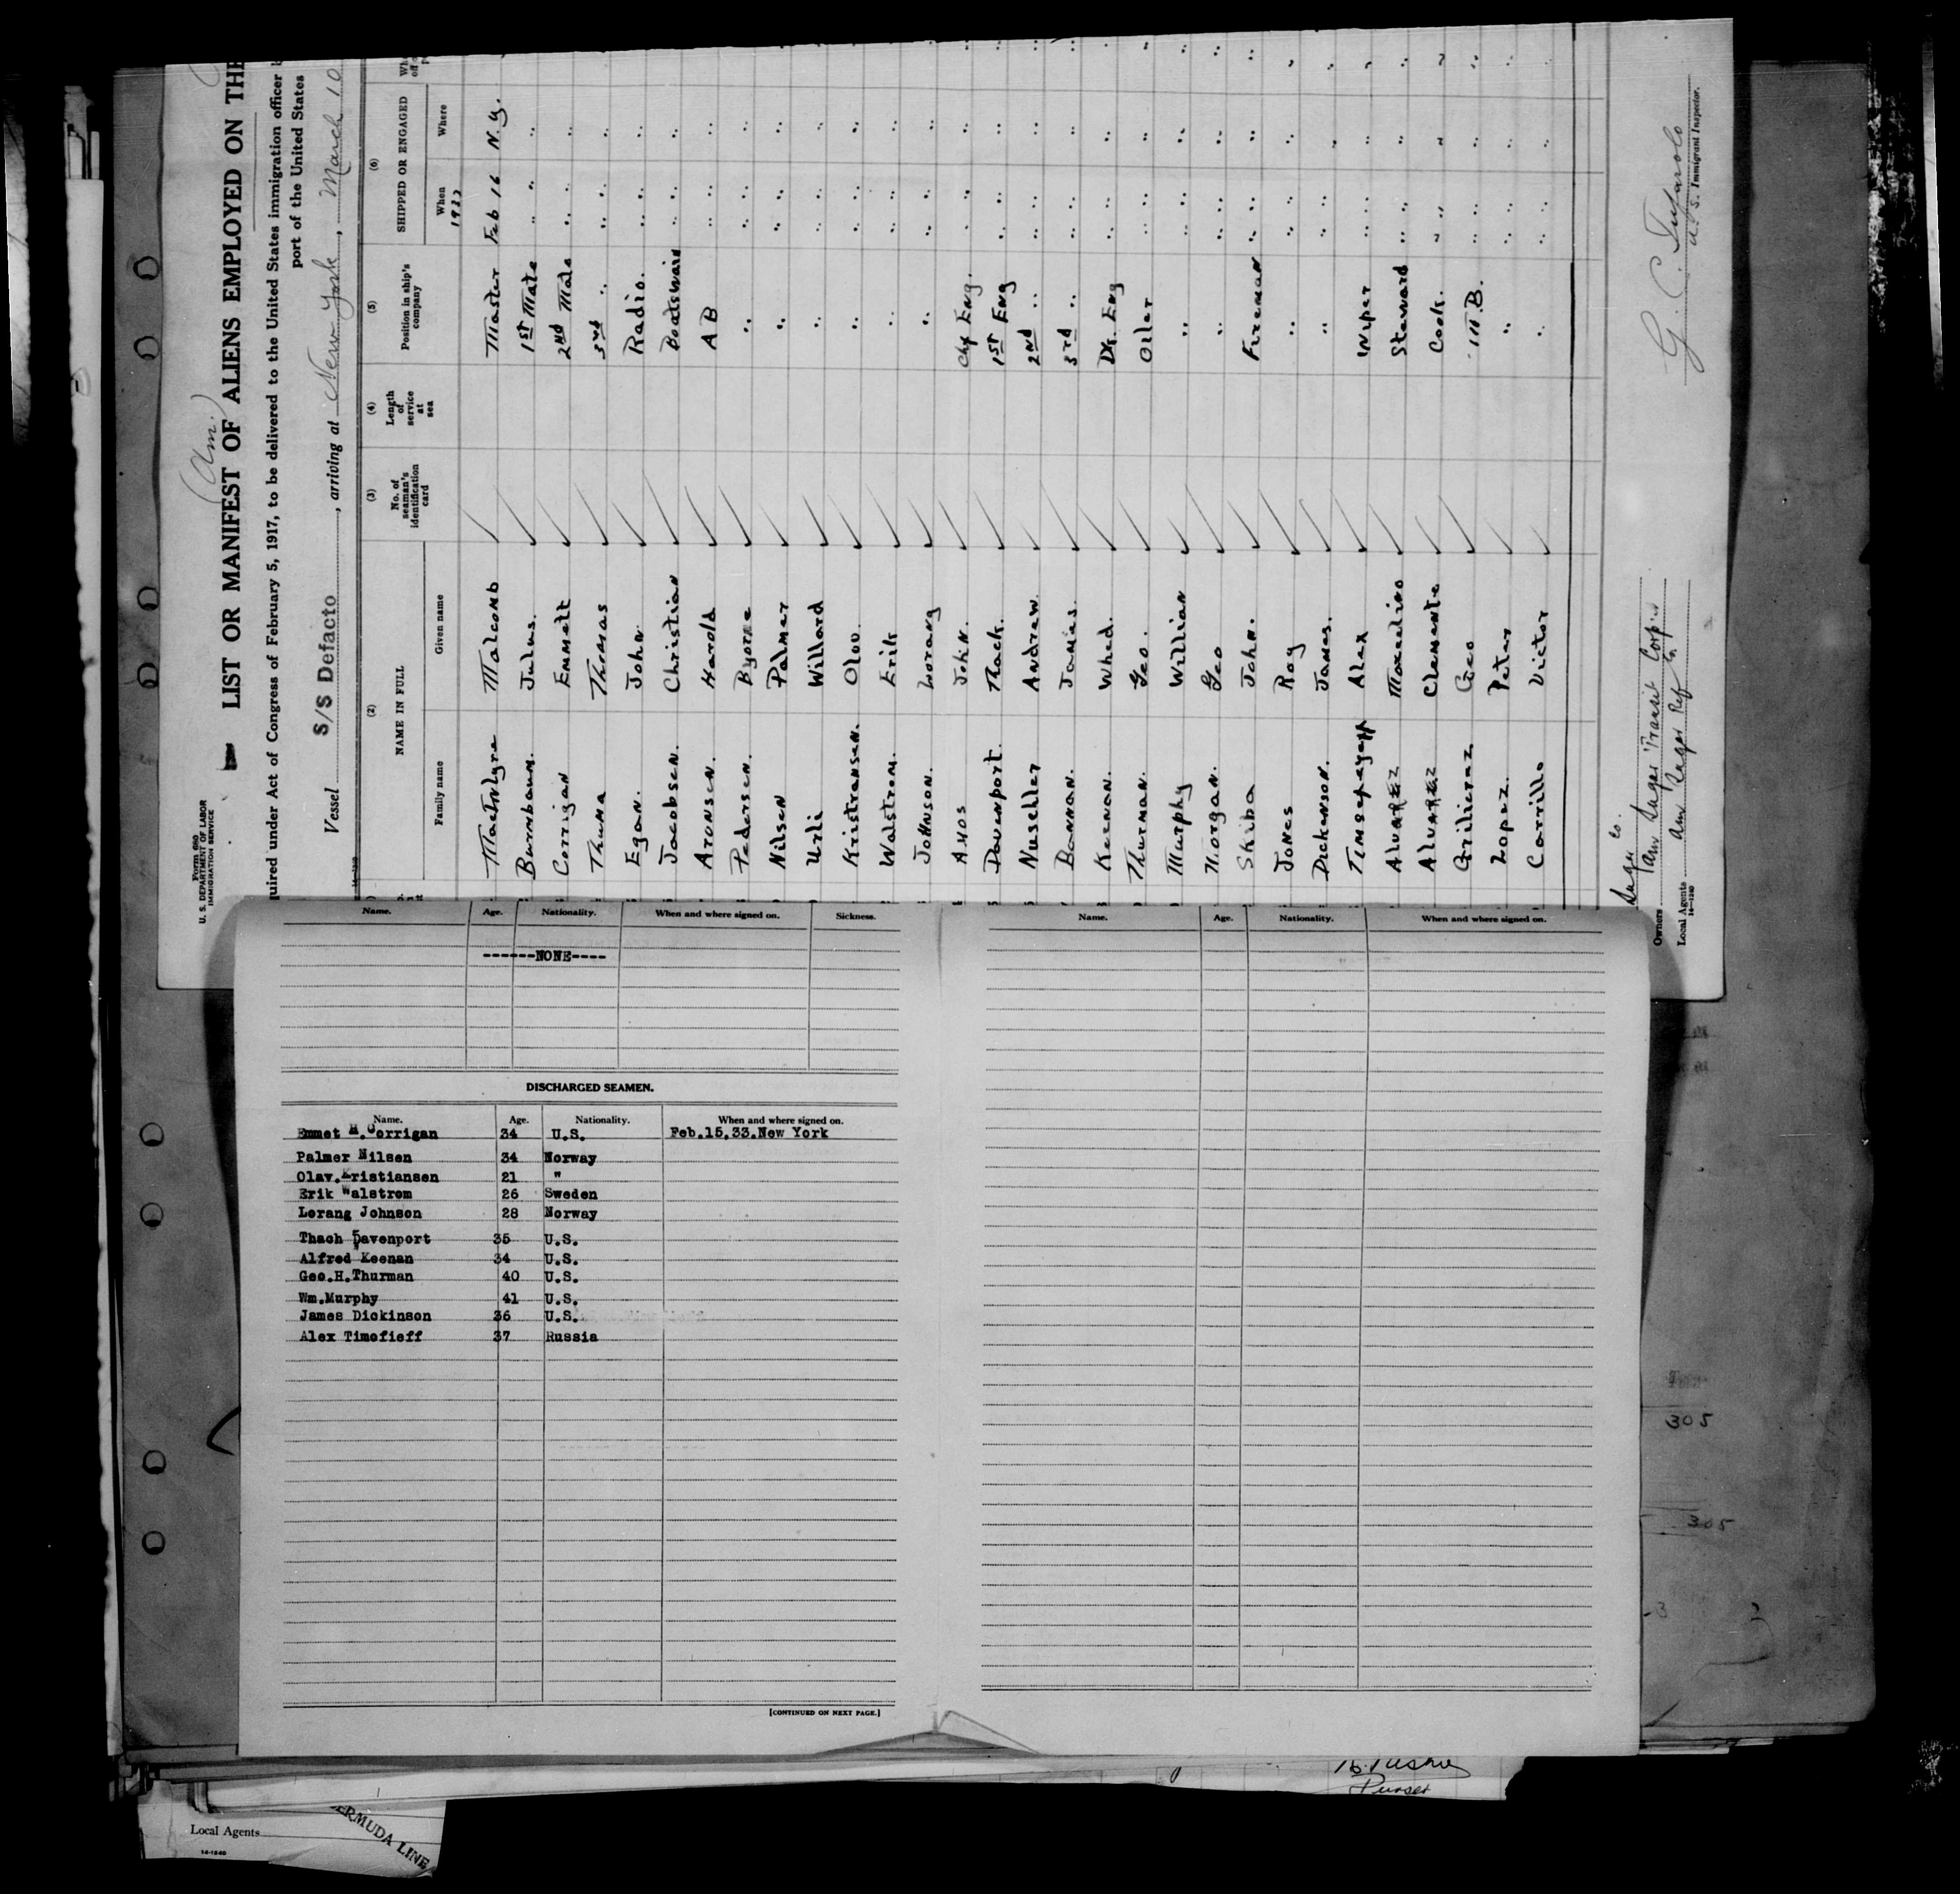 Form 680
U. S. DEPARTMENT OF LABOR
IMMIGRATION SERVICE
(Am.)
LIST OR MANIFEST OF ALIENS EMPLOYED ON THE
quired under Act of Congress of February 5, 1917, to be delivered to the United States immigration officer
port of the United States
Vessel S/S Defacto, arriving at New York, March 10
(2) (3) (4) (5) (6)
NAME IN FULL No. of seaman's identification card Length of service at sea Position in ship's company SHIPPED OR ENGAGED
Family name Given name When Where
1933
MacIntyre Malcomb Master Feb 16 N.Y.
Burnbaum. Julus. 1st Mate " " "
Corrigan Emmett 2nd Mate " " "
Thuma Thomas 3rd " " " "
Egan. John Radio. " " "
Jacobsen. Christian Boatswain " " "
Aronsen. Harold AB " " "
Pedersen. Byorne " " " "
Nilsen Palmer " " " "
Urli Willard " " " "
Kristransen. Olov. " " " "
Walstrom. Erik " " " "
Johnson. Lorang " " " "
Amos John. Chf Eng. " " "
Davenport. Thack. 1st Eng " " "
Nuschler Andrew. 2nd " " " "
Bannan. James. 3rd " " " "
Keenan. Whed. Dk. Eng " " "
Thurman. Geo. Oiler " " "
Murphy Willian " " " "
Morgan. Geo " " " "
Skiba John. Fireman " " "
Jones Roy " " " "
Dickenson. James. " " " "
Alex Wiper " " "
Alvarez Steward " " "
Alvarez Clemente Cook. " " "
Geo M.B. " " "
Lopez. Peter " " " "
Carrillo Victor " " " "
Sugar Co.
Owners Am Sugar Transit Corp.
Local Agents Am Sugar Ref Co
14—1240
G. C. Tufarolo
U. S. Immigrant Inspector.
Name. Age. Nationality. When and where signed on. Sickness.
------NONE----
DISCHARGED SEAMEN.
Name. Age. Nationality. When and where signed on.
Emmet H. Corrigan 34 U.S. Feb.15,33.New York
Palmer Nilsen 34 Norway
Olav.Kristiansen 21 "
Erik Walstrom 26 Sweden
Lorang Johnson 28 Norway
Thach Davenport 35 U.S.
Alfred Keenan 34 U.S.
Geo.H.Thurman 40 U.S.
Wm.Murphy 41 U.S.
James Dickinson 36 U.S.
Alex Timofieff 37 Russia
[CONTINUED ON NEXT PAGE.]
Name. Age. Nationality. When and where signed on.
305
305
Purser
ERMUDA LINE
Local Agents
14-1240